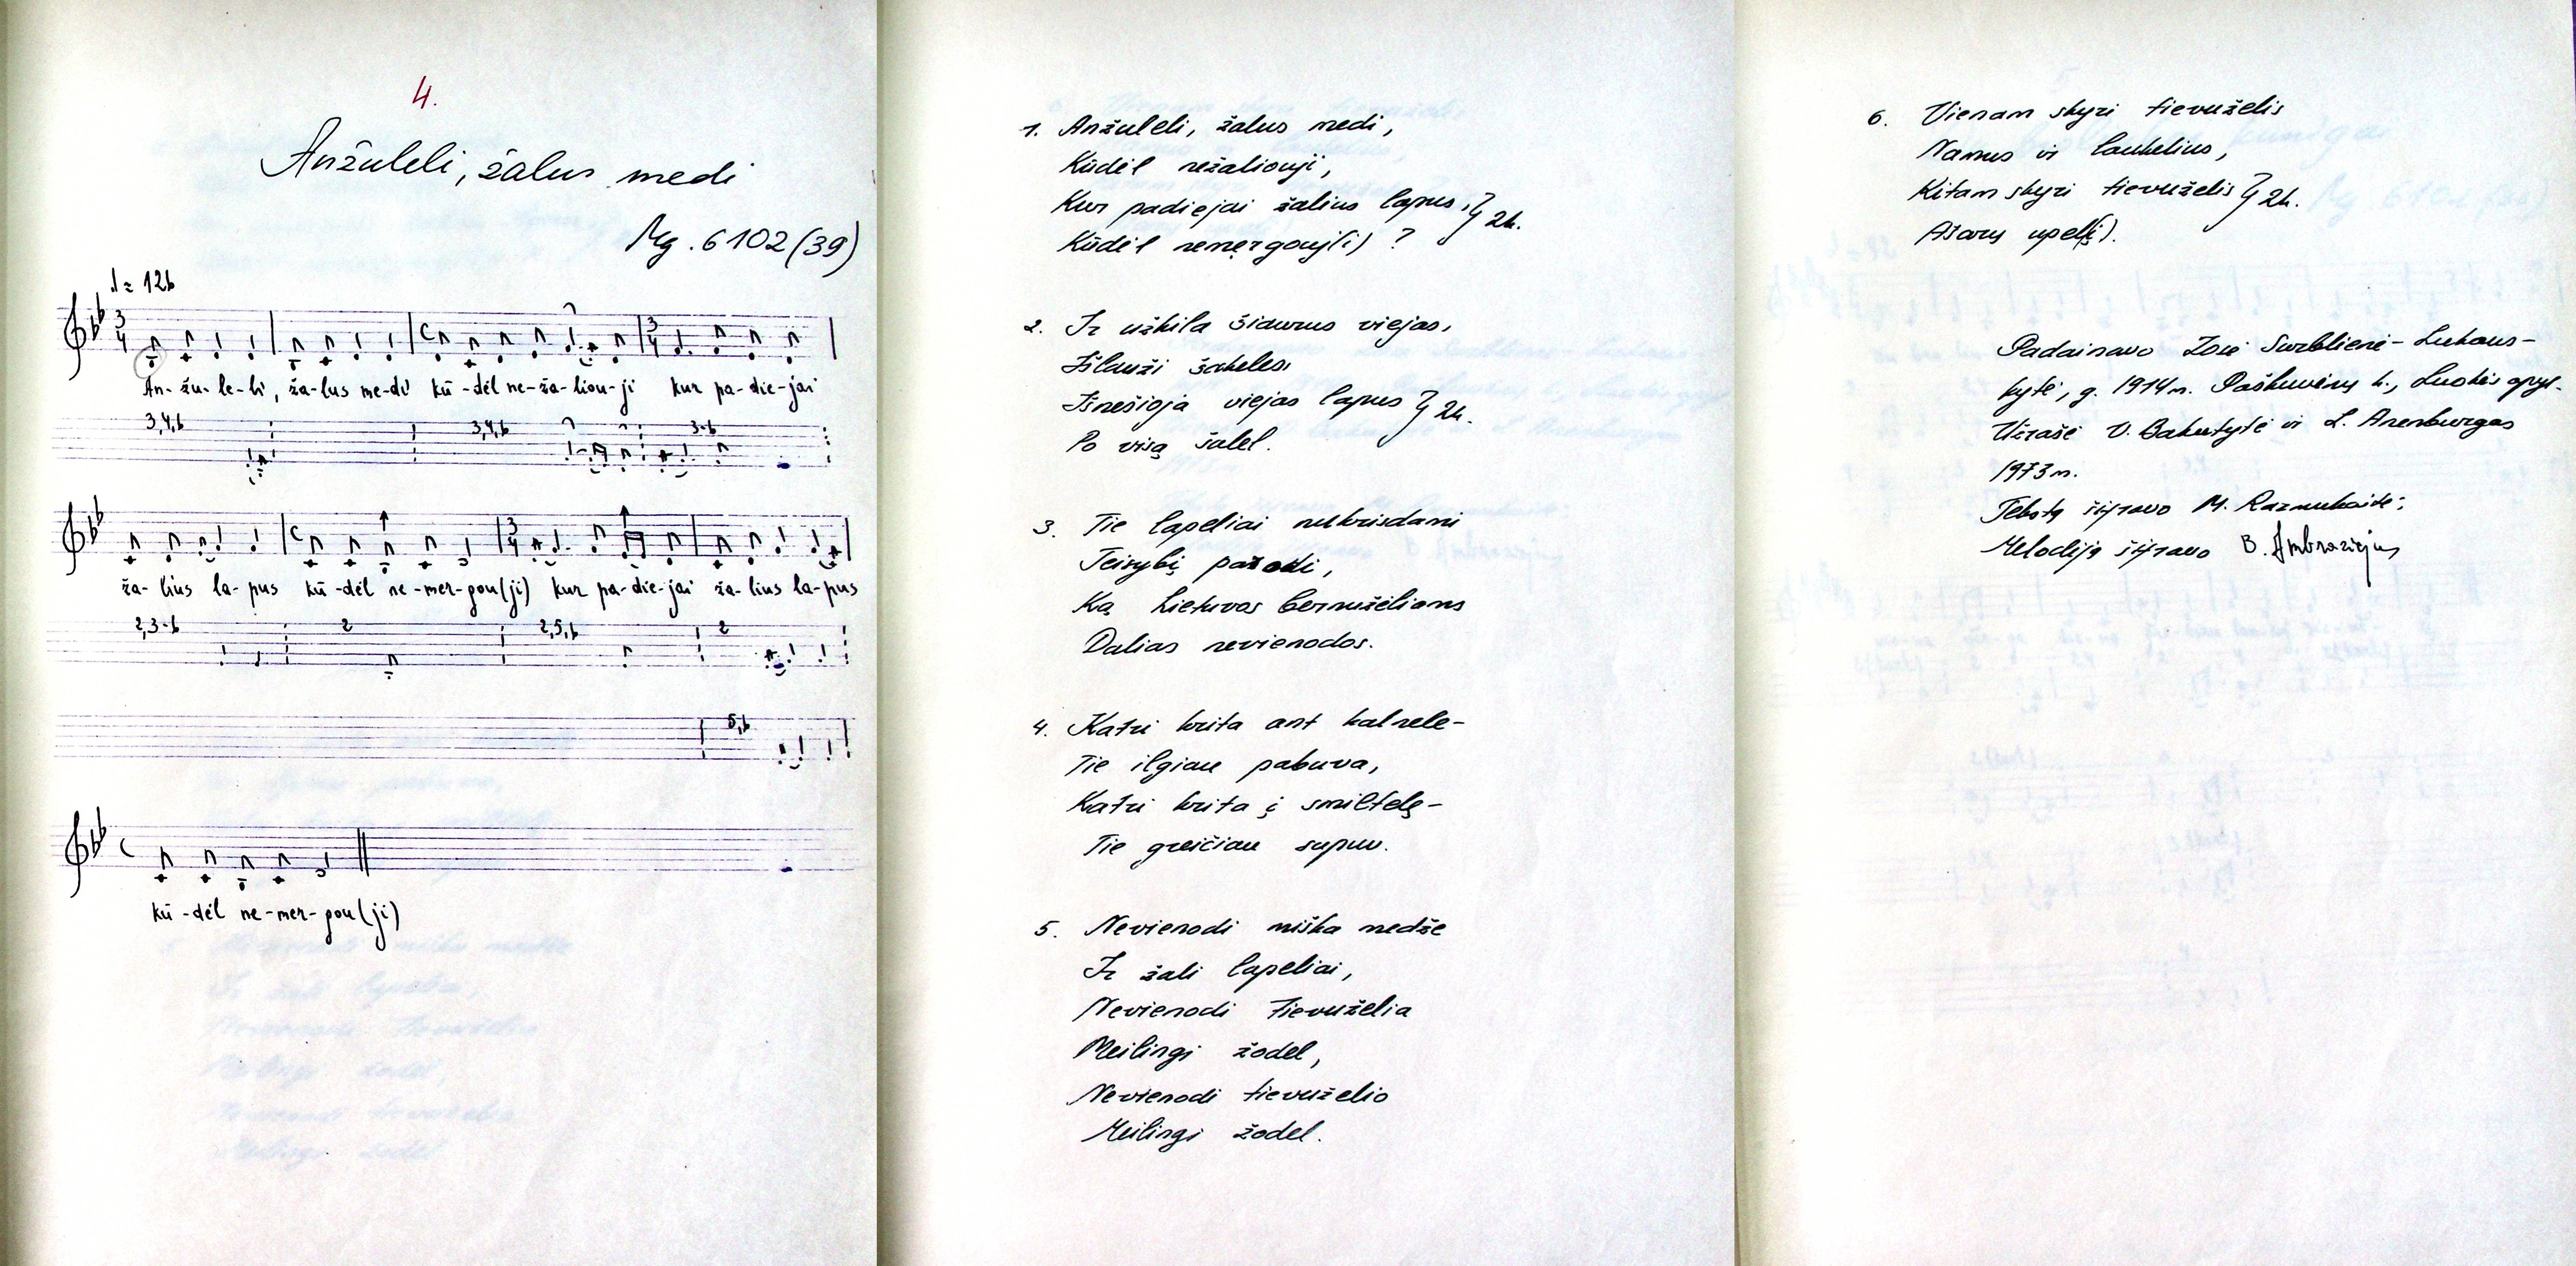 4.
Anžuleli, žalus medi
Mg. 6102 (39)
♩ = 126
An-žu-le-li, ža-lus me-di kū-dėl ne-ža-liou-ji kur pa-die-jai
3,4,6 3,4,6 3-6
ža-lius la-pus kū-dėl ne-mer-gou(ji) kur pa-die-jai ža-lius la-pus
2,3-6 2 2,5,6 2
5,6
kū-dėl ne-mer-gou(ji)
1. Anžuleli, žalus medi,
Kūdėl nežaliouji,
Kur padiejai žalius lapus, } 2k.
Kūdėl nemergouj(i) ?
2. Ir užkila šiaurus viejas,
Išlauži šakeles,
Išnešioja viejas lapus } 2k.
Po visą šalel.
3. Tie lapeliai nukrisdami
Teisybį parodi,
Ką Lietuvos bernuželiams
Dalias nevienodos.
4. Katri krita ant kalnele-
Tie ilgiau pabuva,
Katri krita į smiltelę-
Tie greičiau supuv.
5. Nevienodi miška medže
Ir žali lapeliai,
Nevienodi tievuželia
Meilingi žodel,
Nevienodi tievuželio
Meilingi žodel.
6. Vienam skyri tievuželis
Namus ir laukelius,
Kitam skyri tievuželis } 2k.
Ašarų upel(į).
Padainavo Zosė Surblienė-Lukaus-
kytė, g. 1914 m. Paškuvėnų k., Luokės apyl.
Užrašė V. Bakutytė ir L. Anenburgas
1973 m.
Tekstą šifravo M. Razmukaitė;
Melodiją šifravo B. Ambraziejus